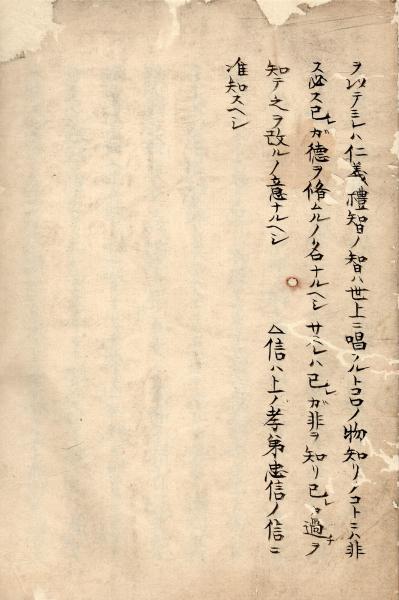 ヲ以テミレハ仁義禮智ノ智ハ世上ニ唱ルトコロノ物知リノコトニハ非
ス必ス己レガ德ヲ脩ムルノ名ナルヘシサスレハ己レガ非ヲ知リ己レカ過チヲ
知テ之ヲ改ルノ意ナルヘシ △信ハ上ノ孝弟忠信ノ信ニ
准知スヘシ